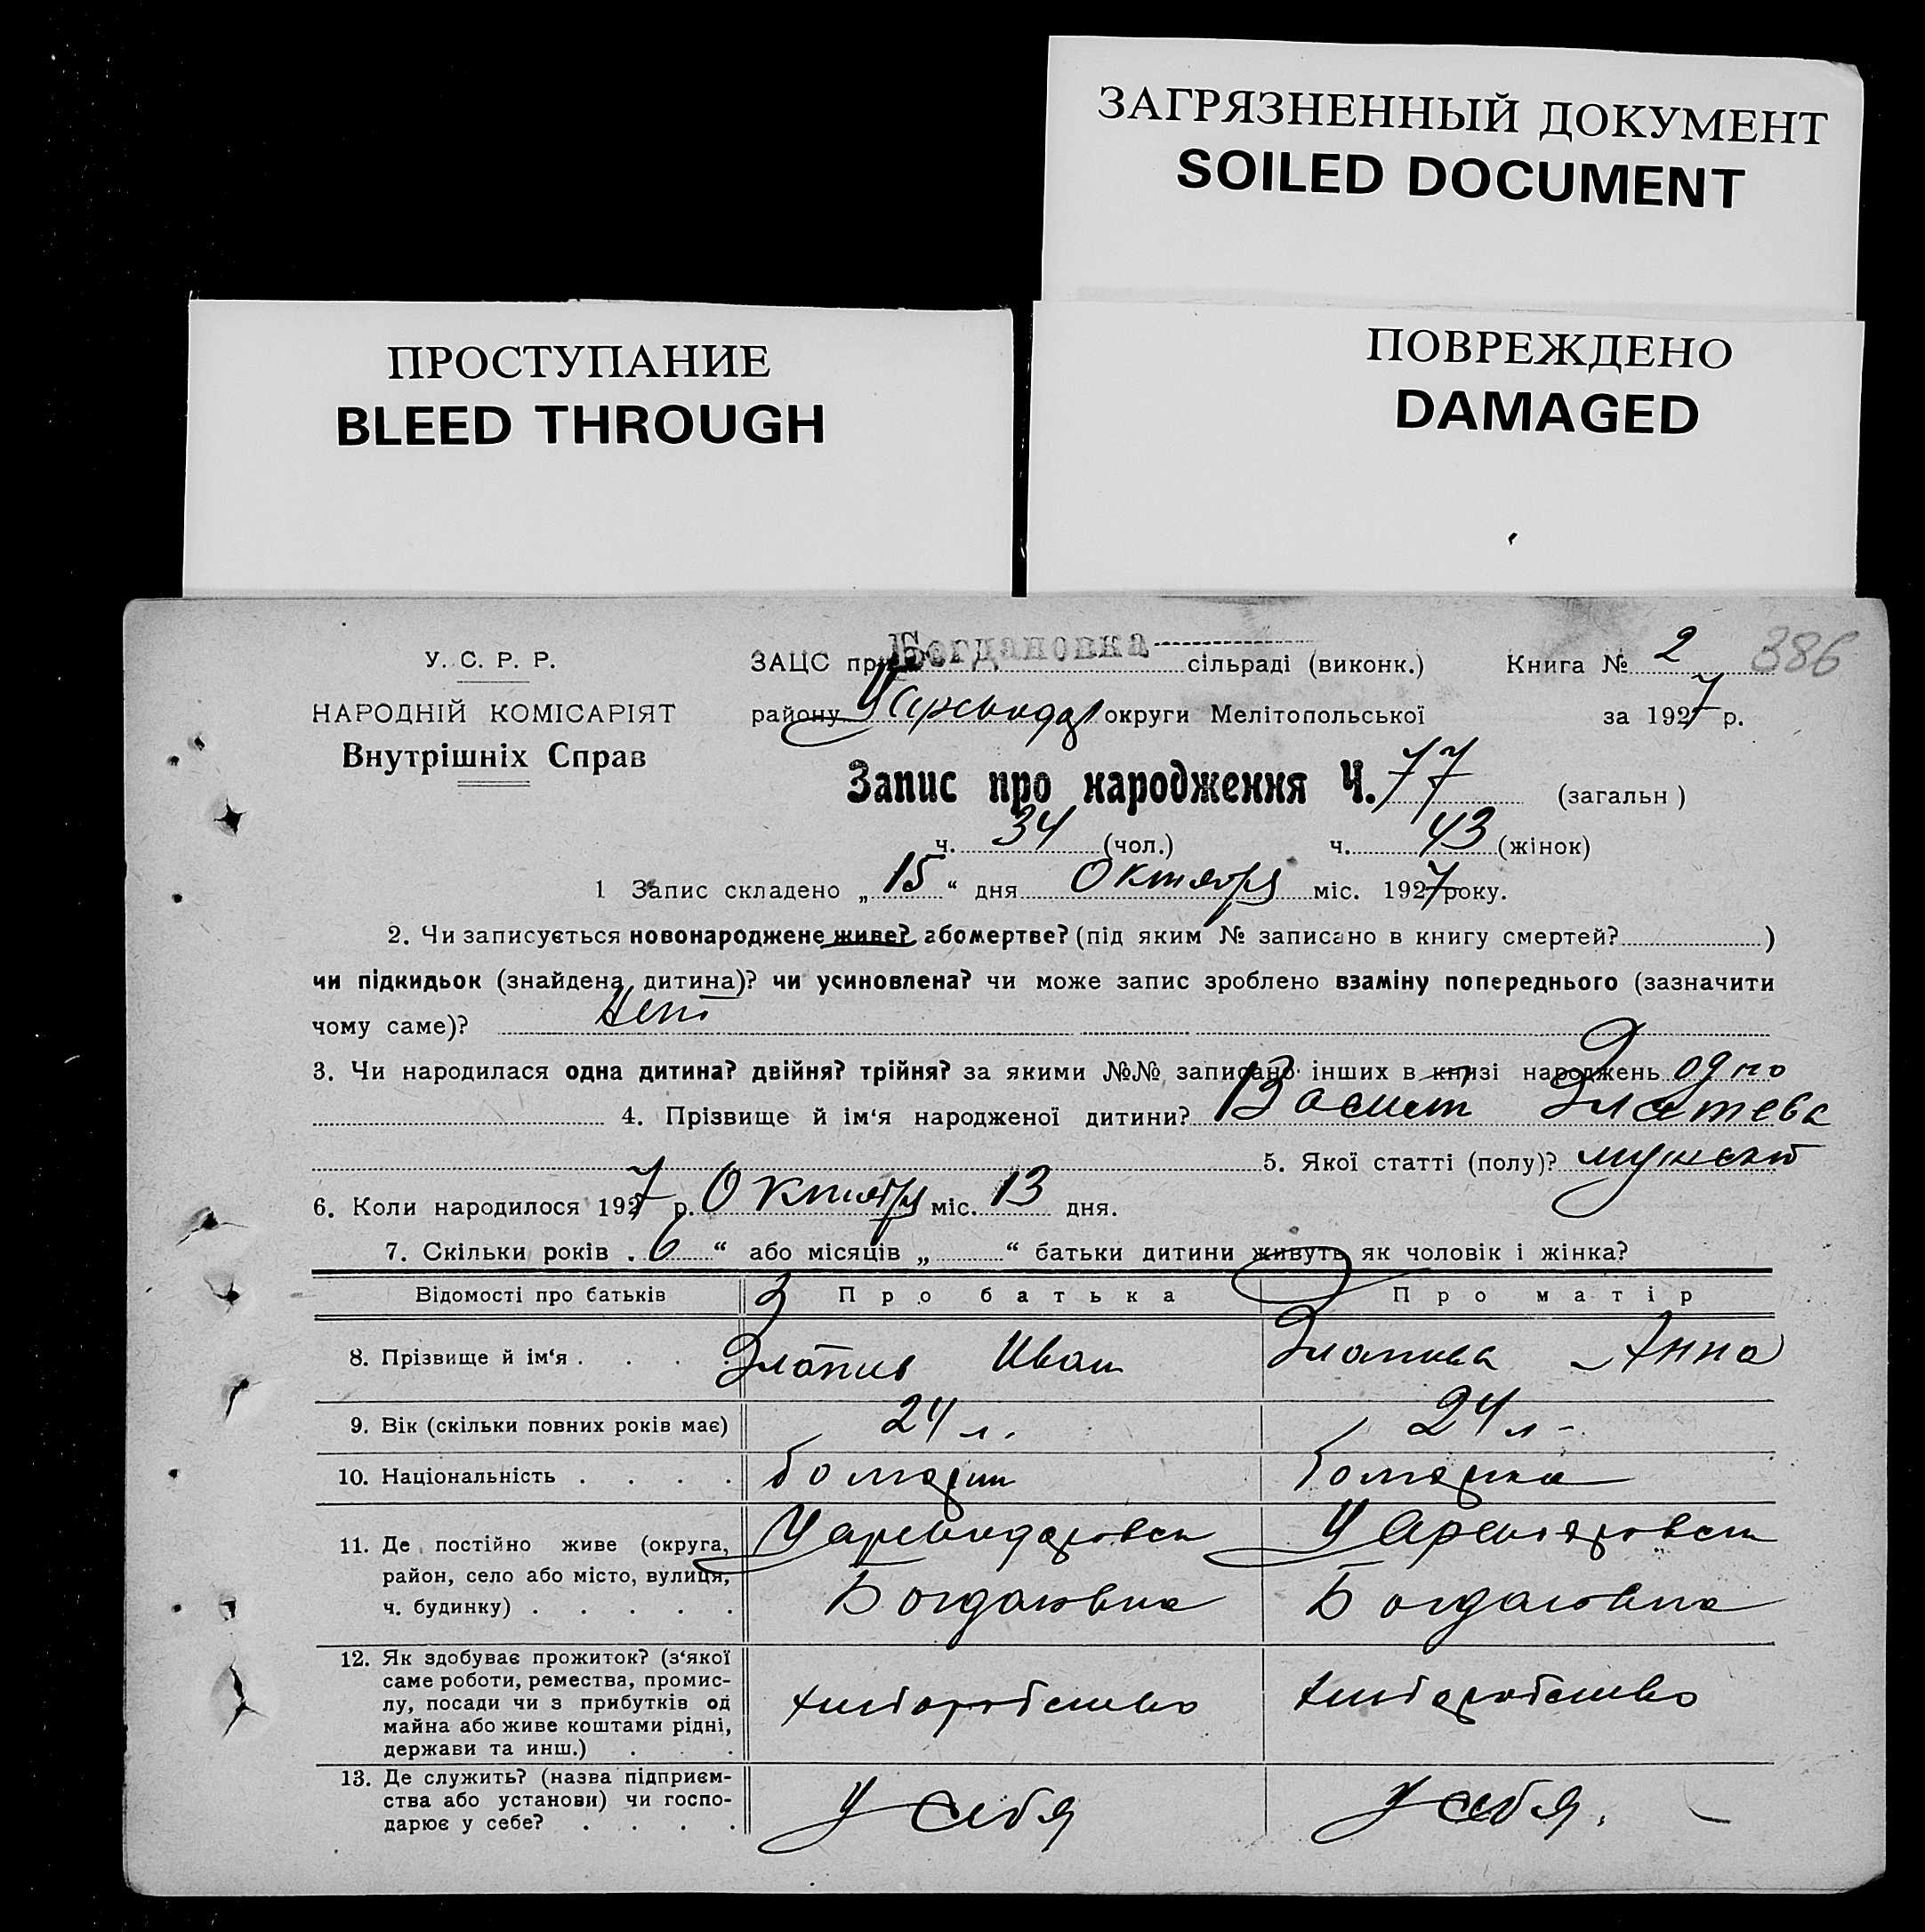 ЗАГРЯЗНЕННЫЙ ДОКУМЕНТ
SOILED DOCUMENT
ПРОСТУПАНИЕ
BLEED THROUGH
ПОВРЕЖДЕНО
DAMAGED
У. С. Р. Р.
НАРОДНІЙ КОМІСАРІЯТ
Внутрішніх Справ
ЗАЦС при Богдановка сільраді (виконк.) Книга № 2 386
району округи Мелітопольської за 1927 р.
Запис про народження Ч. 77 (загальн)
ч. 34 (чол.) ч. 43 (жінок)
1 Запис складено „15“ дня Октября міс. 1927 року.
2. Чи записується новонароджене живе? або мертве? (під яким № записано в книгу смертей? )
чи підкидьок (знайдена дитина)? чи усиновлена? чи може запис зроблено взаміну попереднього (зазначити
чому саме)? Нет
3. Чи народилася одна дитина? двійня? трійня? за якими №№ записано інших в книзі народжень одно
4. Прізвище й ім‘я народженої дитини?
5. Якої статті (полу)? мужской
6. Коли народилося 1927 р. Октября міс. 13 дня.
7. Скільки років . 6 “ або місяців „ “ батьки дитини живуть як чоловік і жінка?
Відомості про батьків Про батька Про матір
8. Прізвище й ім‘я . . . . Иван Анна
9. Вік (скільки повних років має) 24 л. 24 л.
10. Національність . . . . болгарин болгарка
11. Де постійно живе (округа,
район, село або місто, вулиця,
ч. будинку) . . . . . Богдановка Богдановка
12. Як здобуває прожиток? (з‘якої
саме роботи, ремества, промис-
лу, посади чи з прибутків од
майна або живе коштами рідні,
держави та инш.) . . . хлиборобство хлиборобство
13. Де служить? (назва підприєм-
ства або установи) чи госпо-
дарює у себе? . . . . У себя У себя.